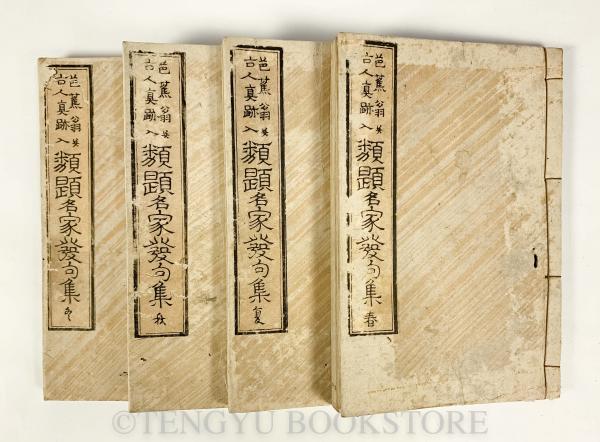 芭蕉翁
古人眞跡入
類題名家發句集 春
芭蕉翁
古人眞跡入
類題名家發句集 夏
芭蕉翁
古人眞跡入
類題名家發句集 秋
芭蕉翁
古人眞跡入
類題名家發句集 冬
©TENGYU BOOKSTORE